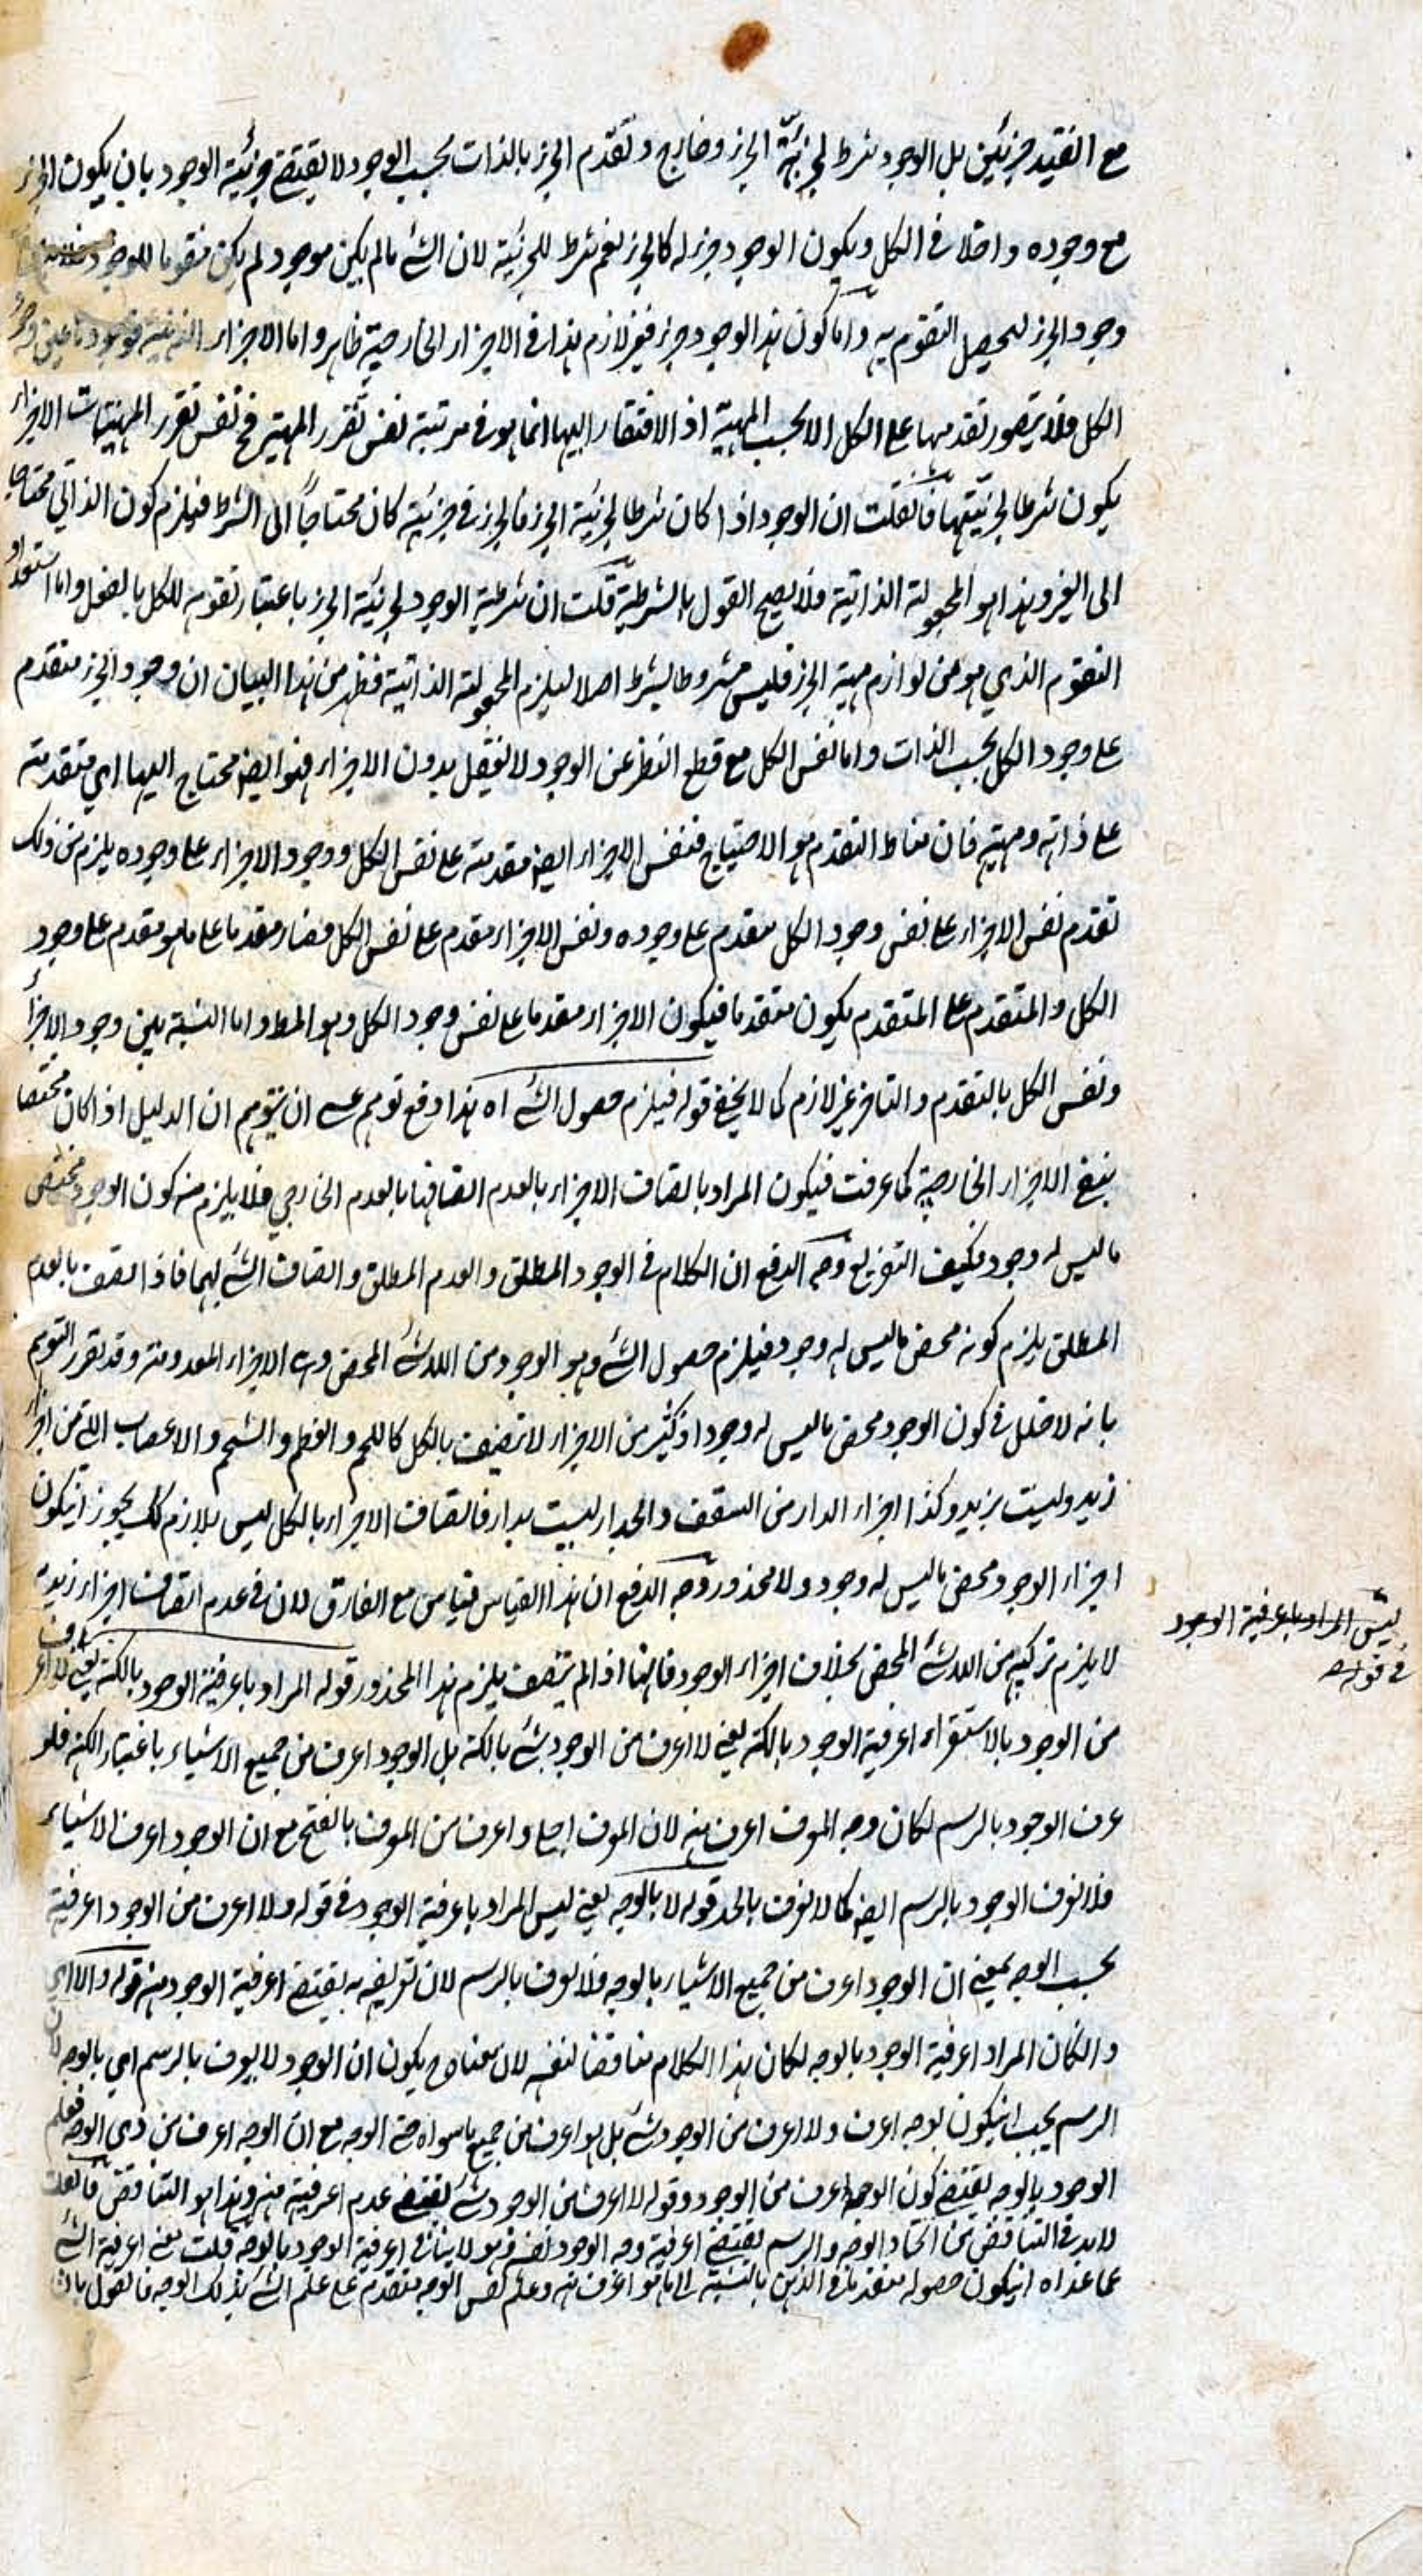 مع التقييد جزئين بل الوجود شرط لجزئية الجزء وخارج وتقدم الجزء بالذات بحسب الوجود لا يقتضي جزئية الوجود بان يكون الجزء
مع وجوده داخلا في الكل ويكون الوجود جزء له كالجزء نعم شرط للجزئية لان الشئ ما لم يكن موجود لم يكن مقوما للوجود
وجود الجزء ليحصل التقوم به واما كون هذا الوجود جزء فغير لازم هذا في الاجزاء الخارجية ظاهر واما الاجزاء الذهنية فوجودها عين وجود
الكل فلا يتصور تقدمها على الكل الا بحسب المهية اذ الافتقار اليها انما هو في مرتبة نفس تقرر المهية فح نفس تقرر المهيات الاجزاء
يكون شرطا لجزئيتها فان قلت ان الوجود اذا كان شرطا لجزئية الجزء فالجزء في جزئيته كان محتاجاً الى الشرط فيلزم كون الذاتي محتاجا
الى الغير وهذا هو المجعولية الذاتية فلا يصح القول بالشرطية قلت ان شرطية الوجود لجزئية الجزء باعتبار تقومه للكل بالفعل واما استعداد
التقوم الذي هو من لوازم مهية الجزء فليس مشروطا بشرط اصلا ليلزم المجعولية الذاتية فظهر من هذا البيان ان وجود الجزء متقدم
على وجود الكل بحسب الذات واما نفس الكل مع قطع النظر عن الوجود لا تعقل بدون الاجزاء فهو ايضا محتاج اليها اي متقدمة
على ذاته ومهيته فان مناط التقدم هو الاحتياج فنفس الاجزاء ايضا مقدمة على نفس الكل ووجود الاجزاء على وجوده يلزم من ذلك
تقدم نفس الاجزاء على نفس وجود الكل مقدم على وجوده ونفس الاجزاء مقدم على نفس الكل فصار مقدما على ما هو مقدم على وجود
الكل والمتقدم على المتقدم يكون متقدما فيكون الاجزاء مقدما على نفس وجود الكل وهو المط واما النسبة بين وجود الاجزاء
ونفس الكل بالتقدم والتاخر غير لازم كما لا يخفى قوله فيلزم حصول الشئ اه هذا دفع توهم عسى ان يتوهم ان الدليل اذا كان مختصا
بنفي الاجزاء الخارجية كما عرفت فيكون المراد باتصاف الاجزاء بالعدم اتصافها بالعدم الخارجي فلا يلزم منه كون الوجود محض
ما ليس له وجود فكيف التفريع وجه الدفع ان الكلام في الوجود المطلق والعدم المطلق واتصاف الشئ بهما فاذا اتصف بالعدم
المطلق يلزم كونه محض ما ليس له وجود فيلزم حصول الشئ وهو الوجود من اللاشئ المحض وهي الاجزاء المعدومة وقد تقرر التوهم
بانه لا خلل في كون الوجود محض ما ليس له وجود اذ كثير من الاجزاء لا تتصف بالكل كاللحم والعظم والشحم والاعصاب التي من اجزاء
زيد وليست بزيد وكذا اجزاء الدار من السقف والجدار ليست بدار فاتصاف الاجزاء بالكل ليس بلازم كك يجوز انيكون
اجزاء الوجود محض ما ليس له وجود ولا محذور وجه الدفع ان هذا القياس قياس مع الفارق لان في عدم اتصاف اجزاء زيد به
لا يلزم تركبه من اللاشئ المحض بخلاف اجزاء الوجود فانها اذا لم يتصف يلزم هذا المحذور قوله المراد باعرفية الوجود بالكنه يعني لا اعرف
من الوجود بالاستقراء اعرفية الوجود بالكنه يعني لا اعرف من الوجود شئ بالكنه بل الوجود اعرف من جميع الاشياء باعتبار الكنه فلو
عرف الوجود بالرسم لكان وجه المعرف اعرف منه لان المعرف اجلى واعرف من المعرف بالفتح مع ان الوجود اعرف الاشياء
فلا نعرف الوجود بالرسم ايضا كما لا نعرف بالحد قوله لا بالوجه يعني ليس المراد باعرفية الوجود في قوله ولا اعرف من الوجود اعرفية
بحسب الوجه بمعنى ان الوجود اعرف من جميع الاشياء بالوجه فلا يعرف بالرسم لان تعريفه به يقتضي اعرفية الوجود منه قوله والا اي
وانكان المراد اعرفية الوجود بالوجه لكان هذا الكلام مناقضا لنفسه لان معناه ح يكون ان الوجود لا يعرف بالرسم اي بالوجه لان
الرسم يجب انيكون بوجه اعرف ولا اعرف من الوجود شئ بل هو اعرف من جميع ما سواه حتى الوجه مع ان الوجه اعرف من ذي الوجه فعلم
الوجود بالوجه يقتضي كون الوجه اعرف من الوجود وقوله لا اعرف من الوجود شئ يقتضي عدم اعرفيته منه وهذا هو التناقض فان قلت
لابد في التناقض من اتحاد الوجه والرسم يقتضي اعرفية وجه الوجود نفسه وهو لا ينافي اعرفية الوجود بالوجه قلت معنى اعرفية الشئ
عما عداه انيكون حصوله متقدما في الذهن بالنسبة الى ما هو اعرف منه وعلم نفس الوجه متقدم على علم الشئ بذلك الوجه فالقول بان
ليس المراد باعرفية الوجود
في قوله